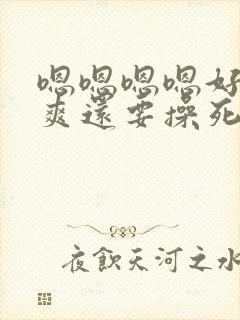 嗯嗯嗯嗯好
爽還要操死
夜飲天河之水